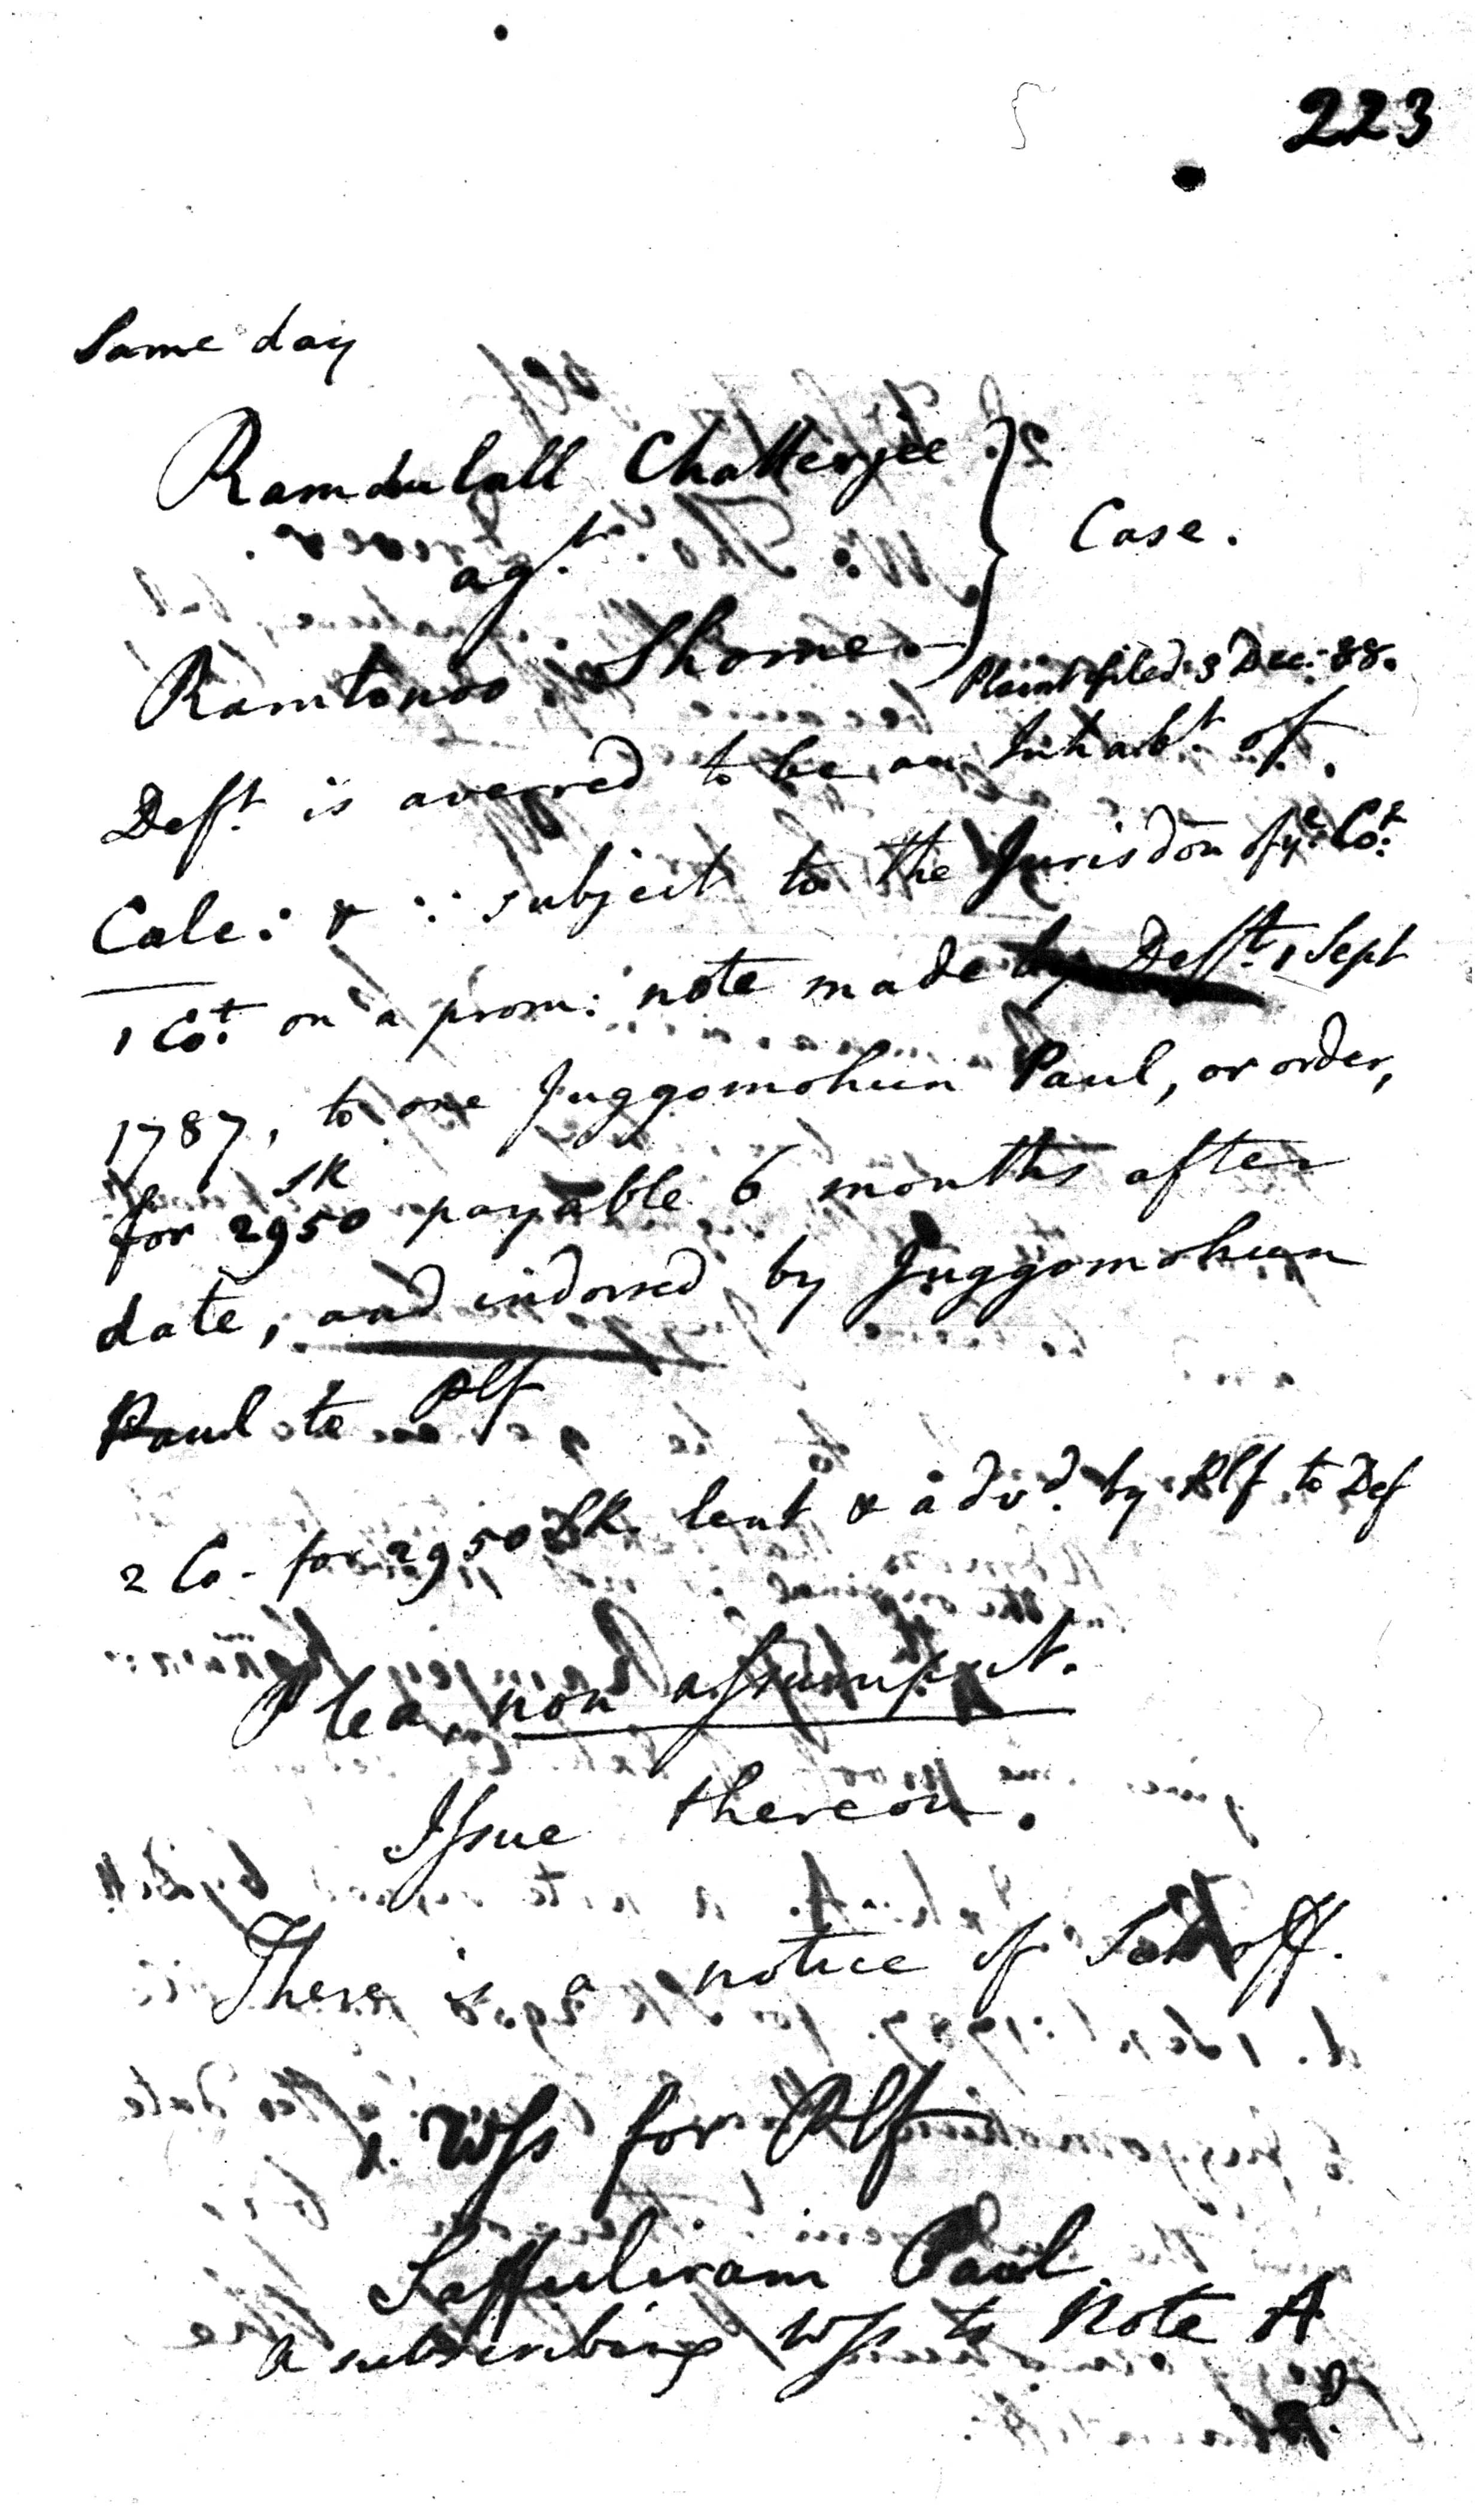 223
Same day
Ramdulall Chatterjee
agt.
Case.
Ramtonoo Shome
Plaint filed 3 Dec: 88.
Deft. is averred to be an Inhabt. of
Calc: & ∵ subject to the Jurisdon of ye. Cot.
1 Cot. on a prom: note made by Deft. 1 Sept
1787, to one Juggomohun Paul, or order,
for 2950 SR payable 6 months after
date, and indorsed by Juggomohun
Paul to Plf
2 Co. for 2950 SR. lent & advd. by Plf to Def
Plea, non assumpsit.
Issue thereon.
There is a notice of Set off.
1. Wss for Plf
Saffuliram Paul
a subscribing Wss to Note A